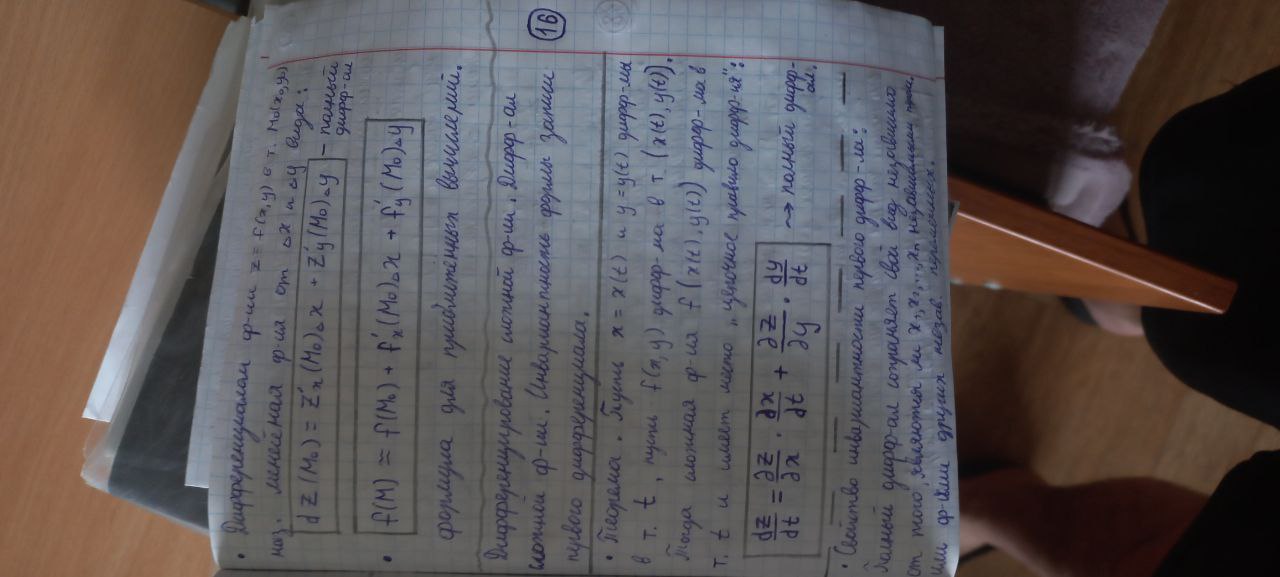 • Дифференциалом ф-ии z = f(x,y) в т. M₀(x₀,y₀)
наз. линейная ф-ия от Δx и Δy вида:
dz(M₀) = z'x(M₀)Δx + z'y(M₀)Δy - полный дифф-ал
• f(M) ≈ f(M₀) + f'x(M₀)Δx + f'y(M₀)Δy
формула для приближённых вычислений.
16
Дифференцирование сложной ф-ии. Дифф-ал
сложной ф-ии. Инвариантность формы записи
первого дифференциала.
• Теорема. Пусть x = x(t) и y = y(t) дифф-мы
в т. t, пусть f(x,y) дифф-ма в т (x(t), y(t)).
Тогда сложная ф-ия f(x(t), y(t)) дифф-ма в
т. t и имеет место „цепочное правило дифф-ия":
dz/dt = ∂z/∂x · ∂x/dt + ∂z/∂y · dy/dt ⇝ полный дифф-ал.
• Свойство инвариантности первого дифф-ла:
Полный дифф-ал сохраняет свой вид независимо
от того, являются ли x₁, x₂, ..., xₙ независимыми прем.
или ф-ями других незав. переменных.